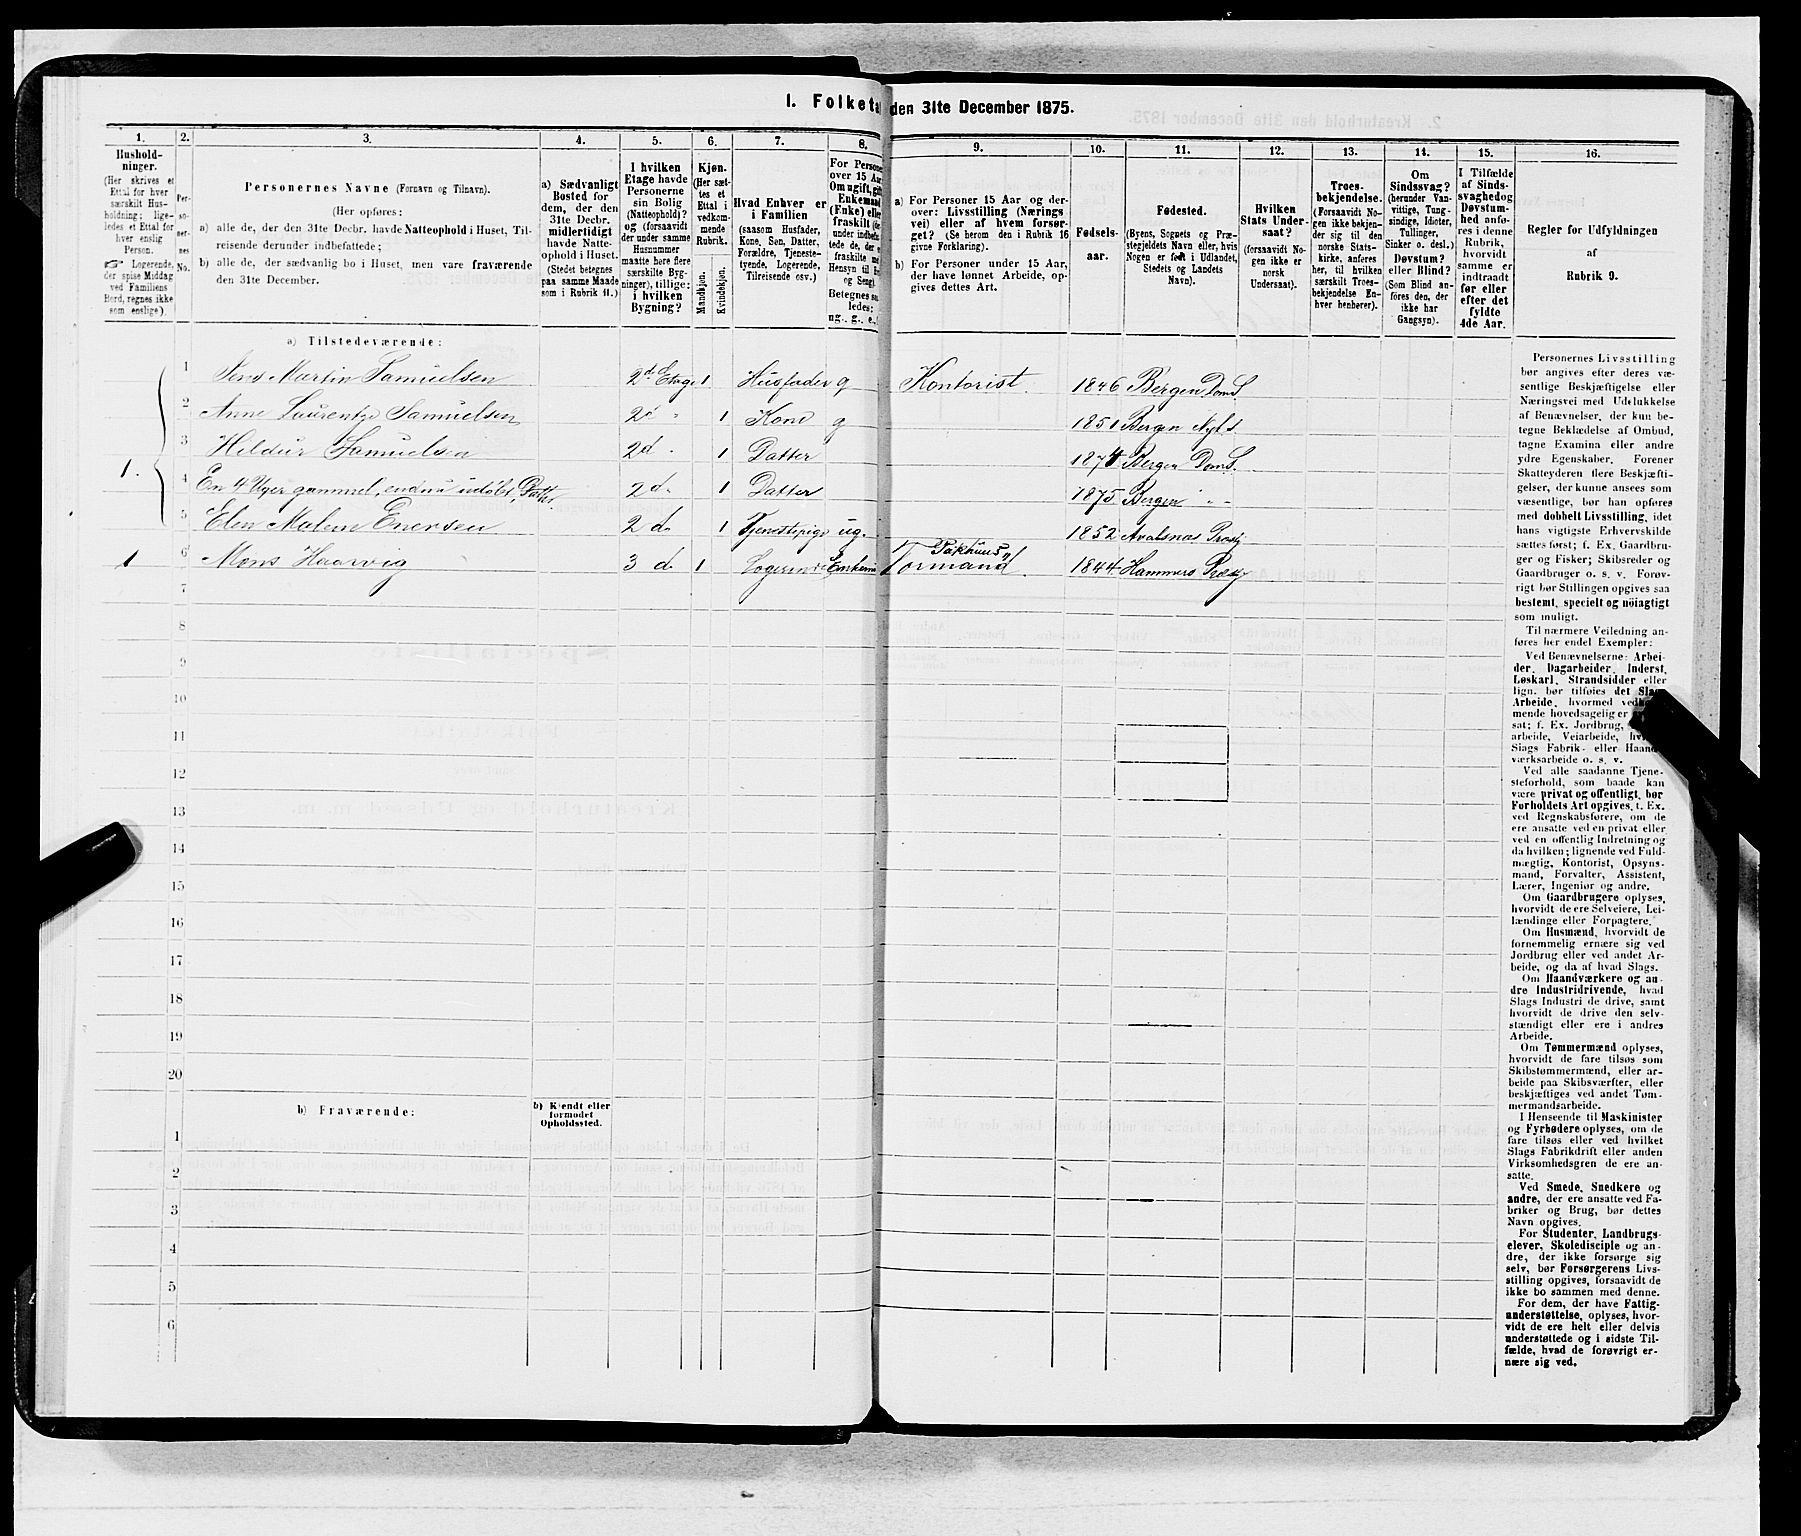 1. Folketal den 31te December 1875.
1.
Hushold-
ninger.
(Her skrives et
Ettal for hver
særskilt Hus-
holdning; lige-
ledes et Ettal for
hver enslig
Person.
Logerende,
der spise Middag
ved Familiens
Bord, regnes ikke
som enslige).
2.
Per-
so-
ner-
nes
No.
3.
Personernes Navne (Fornavn og Tilnavn).
(Her opføres:
a) alle de, der den 31te Decbr. havde Natteophold i Huset, Til-
reisende derunder indbefattede;
b) alle de, der sædvanlig bo i Huset, men vare fraværende
den 31te December.
4.
a) Sædvanligt
Bosted for
dem, der den
31te Decbr.
midlertidigt
havde Natte-
ophold i Huset.
(Stedet betegnes
paa samme Maade
som i Rubrik 11.)
5.
I hvilken
Etage havde
Personerne
sin Bolig
(Natteophold)?
og (forsaavidt
der under samme
Husnummer
maatte høre flere
særskilte Byg-
ninger), tillige:
i hvilken
Bygning?
6.
Kjøn.
(Her sæt-
tes et
Ettal i
vedkom-
mende
Rubrik.
Mandkjøn.
Kvindekjøn.
7.
Hvad Enhver er
i Familien
(saasom Husfader,
Kone, Søn, Datter,
Forældre, Tjeneste-
tyende, Logerende,
Tilreisende osv.)
8.
For Personer
over 15 Aar
Om ugift, gift,
Enkemand
(Enke) eller
fraskilt
Betegnes saa-
ledes:
ug., g., e.,
9.
a) For Personer 15 Aar og der-
over: Livsstilling (Nærings-
vei) eller af hvem forsør-
get? (Se herom den i Rubrik 16
givne Forklaring).
b) For Personer under 15 Aar,
der have lønnet Arbeide, op-
gives dettes Art.
10.
Fødsels-
aar.
11.
Fødested.
(Byens, Sognets og Præ-
stegjeldets Navn eller, hvis
Nogen er født i Udlandet,
Stedets og Landets
Navn).
12.
Hvilken
Stats Under-
saat?
(forsaavidt No-
gen ikke er
norsk
Undersaat).
13.
Troes-
bekjendelse.
(Forsaavidt No-
gen ikke bekjen-
der sig til den
norske Stats-
kirke, anføres
her, til hvilken
særskilt Troes-
bekjendelse En-
hver henhører).
14.
Om
Sindssvag?
(herunder Van-
vittige, Tung-
sindige, Idioter,
Tullinger,
Sinker o. desl.)
Døvstum?
eller Blind?
(Som Blind an-
føres den, der
ikke har
Gangsyn).
15.
I Tilfælde
af Sinds-
svaghed og
Døvstum-
hed anfø-
res i denne
Rubrik,
hvorvidt
samme er
indtraadt
før eller
efter det
fyldte
4de Aar.
16.
Regler for Udfyldningen
af
Rubrik 9.
a) Tilstedeværende:
1 Jens Martin Samuelsen 2d Etage 1 Husfader g Kontorist 1846 Bergen Doms.
2 Anne Laurentze Samuelsen 2d " 1 Kone g 1851 Bergen Nyks
3 Hildur Samuelsen 2d " 1 Datter 1874 Bergen Doms.
1. 4 En 4 Uger gammel, endnu udøbt, Datter 2d. 1 Datter 1875 Bergen " "
5 Elen Malene Enersen 2 d. 1 Tjenestepige ug. 1852 Avalsnæs Præstg
1 6 Mons Haarvig 3 d. 1 Logerende Enkemand Pakhuus Formand 1844 Hammers Præstg
7
8
9
10
11
12
13
14
15
16
17
18
19
20
b) Fraværende:
b) Kjendt eller
formodet
Opholdssted.
1
2
3
4
5
6
Personernes Livsstilling
bør angives efter deres væ-
sentlige Beskjæftigelse eller
Næringsvei med Udelukkelse
af Benævnelser, der kun be-
tegne Beklædelse af Ombud,
tagne Examina eller andre
ydre Egenskaber. Forener
Skatteyderen flere Beskjæfti-
gelser, der kunne ansees som
væsentlige, bør han opføres
med dobbelt Livsstilling, idet
hans vigtigste Erhvervskilde
sættes først; f. Ex. Gaardbru-
ger og Fisker; Skibsreder og
Gaardbruger o. s. v. Forøv-
rigt bør Stillingen opgives saa
bestemt, specielt og nöiagtigt
som muligt.
Til nærmere Veiledning an-
føres her endel Exempler:
Ved Benævnelserne: Arbei-
der, Dagarbeider, Inderst,
Løskarl, Strandsidder eller
lign. bør tilføies det Slags
Arbeide, hvormed vedkom-
mende hovedsagelig er
sat; f. Ex. Jordbrug,
arbeide, Veiarbeide, hvilket
Slags Fabrik- eller Haand-
værksarbeide o. s. v.
Ved alle saadanne Tjene-
steforhold, som baade kan
være privat og offentligt, bør
Forholdets Art opgives, t. Ex.
ved Regnskabsførere, om de
ere ansatte ved en privat eller
ved en offentlig Indretning og
da hvilken; lignende ved Fuld-
mægtig, Kontorist, Opsyns-
mand, Forvalter, Assistent,
Lærer, Ingeniør og andre.
Om Gaardbrugere oplyses,
hvorvidt de ere Selveiere, Lei-
lændinge eller Forpagtere.
Om Husmænd, hvorvidt de
fornemmelig ernære sig ved
Jordbrug eller ved andet Ar-
beide, og da af hvad Slags.
Om Haandværkere og an-
dre Industridrivende, hvad
Slags Industri de drive, samt
hvorvidt de drive den selv-
stændigt eller ere i andres
Arbeide.
Om Tømmermænd oplyses,
hvorvidt de fare tilsøs som
Skibstømmermænd, eller ar-
beide paa Skibsværfter, eller
beskjæftiges ved andet Tøm-
mermandsarbeide.
I Henseende til Maskinister
og Fyrbødere oplyses, om de
fare tilsøs eller ved hvilket
Slags Fabrikdrift eller anden
Virksomhedsgren de ere an-
satte.
Ved Smede, Snedkere og
andre, der ere ansatte ved Fa-
briker og Brug, bør dettes
Navn opgives.
For Studenter, Landbrugs-
elever, Skoledisciple og an-
dre, der ikke forsørge sig
selv, bør Forsørgerens Livs-
stilling opgives, forsaavidt de
ikke bo sammen med denne.
For dem, der have Fattig-
understøttelse, oplyses, hvor-
vidt de ere helt eller delvis
understøttede og i sidste Til-
fælde, hvad de forøvrigt er-
nære sig ved.